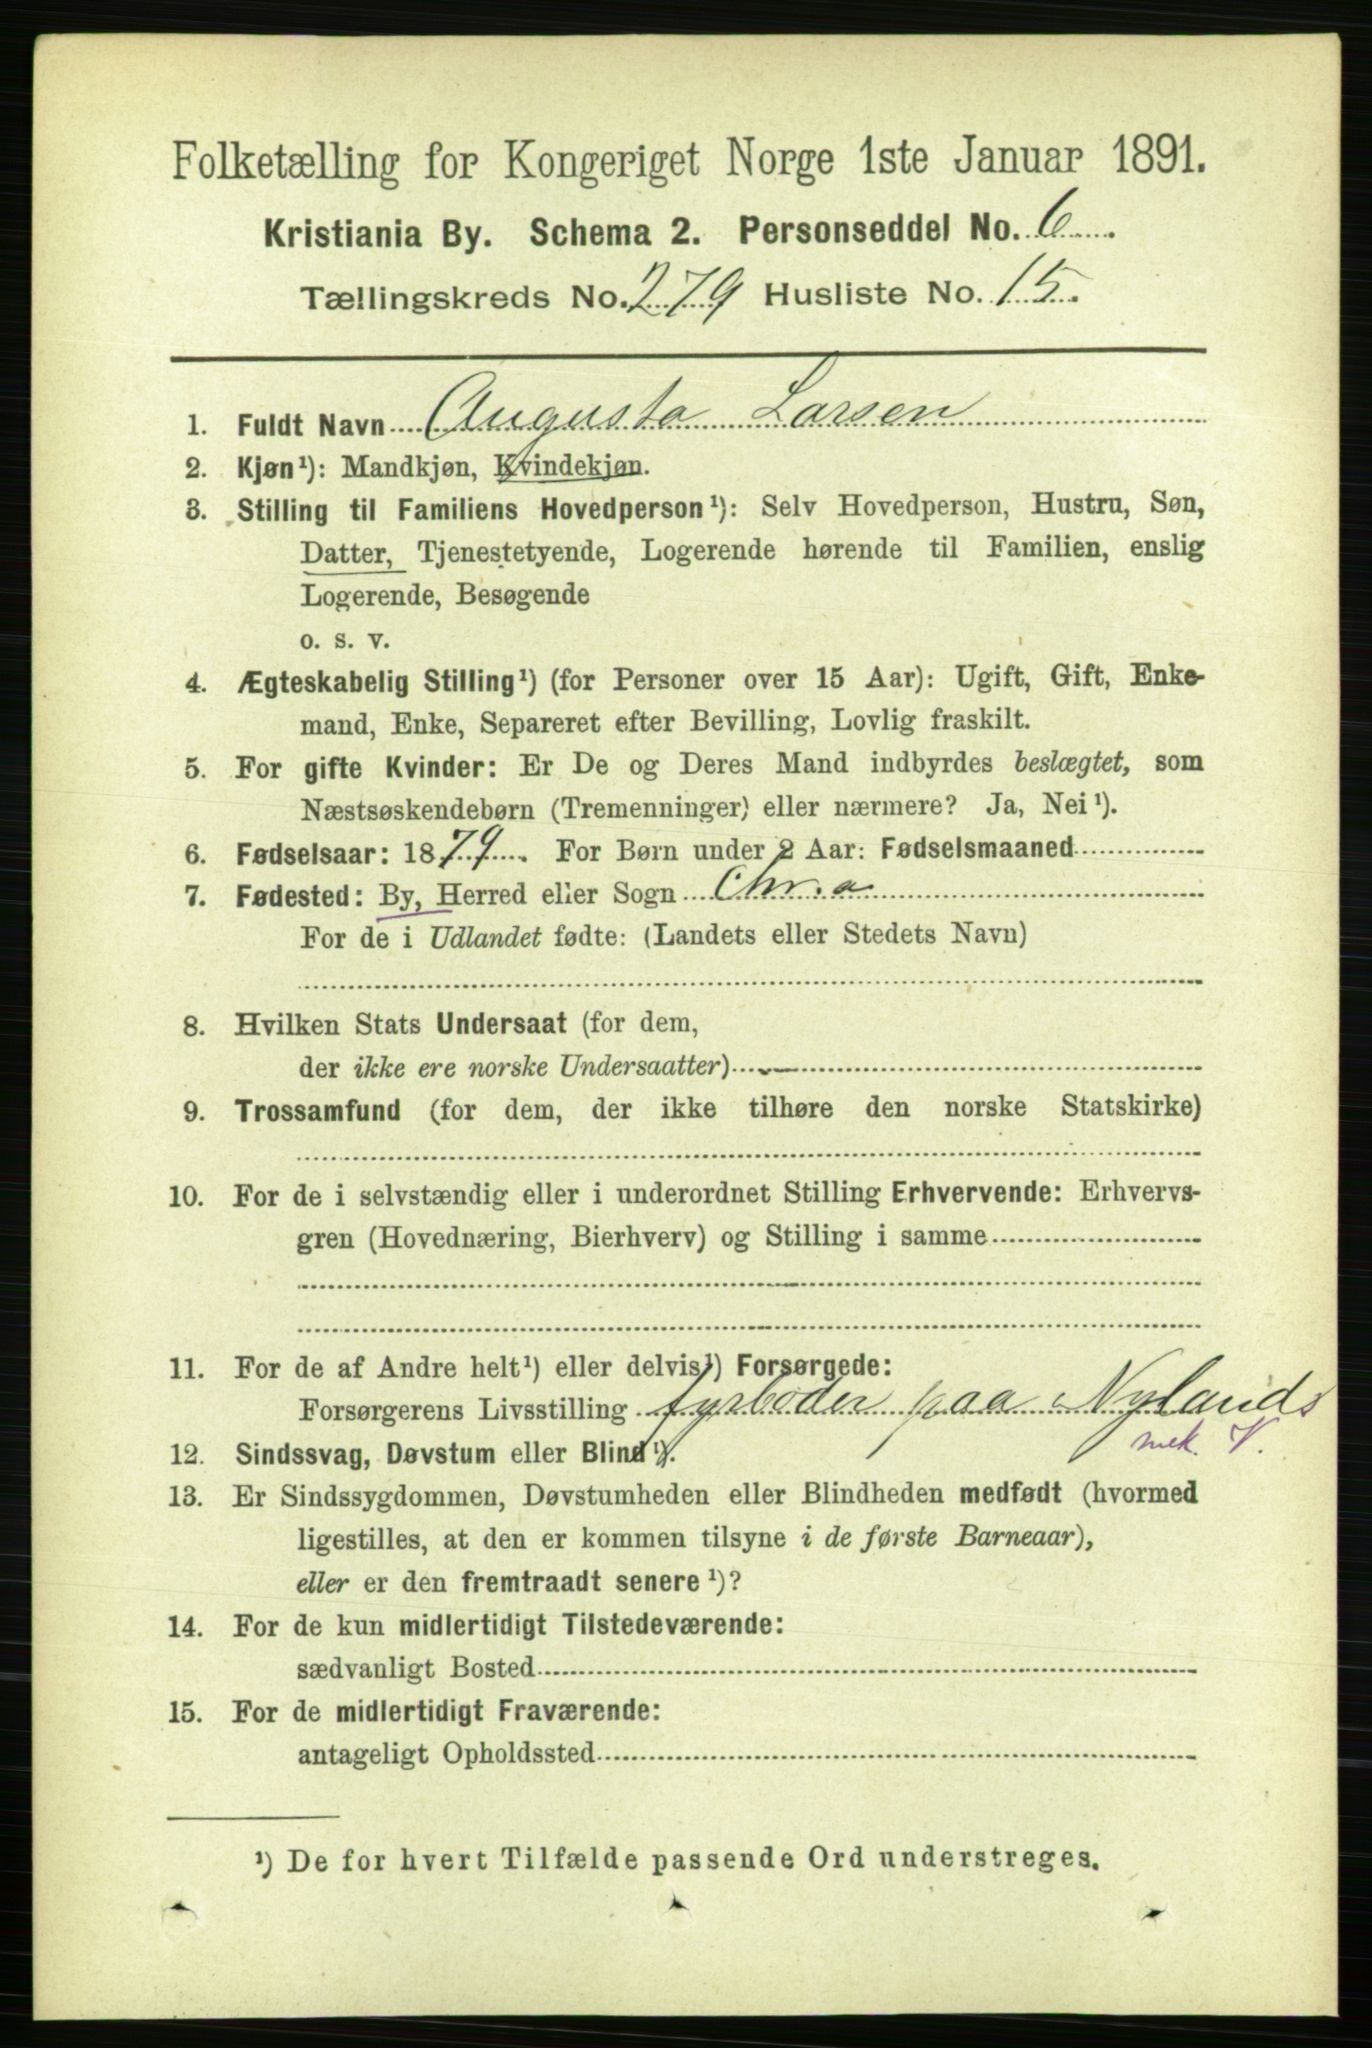 Folketælling for Kongeriget Norge 1ste Januar 1891.
Kristiania By. Schema 2. Personseddel No. 6.
Tællingskreds No. 279 Husliste No. 15.
1. Fuldt Navn Augusta Larsen
2. Kjøn¹): Mandkjøn, Kvindekjøn.
3. Stilling til Familiens Hovedperson¹): Selv Hovedperson, Hustru, Søn,
Datter, Tjenestetyende, Logerende hørende til Familien, enslig
Logerende, Besøgende
o. s. v.
4. Ægteskabelig Stilling¹) (for Personer over 15 Aar): Ugift, Gift, Enke-
mand, Enke, Separeret efter Bevilling, Lovlig fraskilt.
5. For gifte Kvinder: Er De og Deres Mand indbyrdes beslægtet, som
Næstsøskendebørn (Tremenninger) eller nærmere? Ja, Nei¹).
6. Fødselsaar: 1879. For Børn under 2 Aar: Fødselsmaaned
7. Fødested: By, Herred eller Sogn Chr.a
For de i Udlandet fødte: (Landets eller Stedets Navn)
8. Hvilken Stats Undersaat (for dem,
der ikke ere norske Undersaatter)
9. Trossamfund (for dem, der ikke tilhøre den norske Statskirke)
10. For de i selvstændig eller i underordnet Stilling Erhvervende: Erhvervs-
gren (Hovednæring, Bierhverv) og Stilling i samme
11. For de af Andre helt¹) eller delvis¹) Forsørgede:
Forsørgerens Livsstilling fyrbøder paa Nylands
mek. V.
12. Sindssvag, Døvstum eller Blind¹).
13. Er Sindssygdommen, Døvstumheden eller Blindheden medfødt (hvormed
ligestilles, at den er kommen tilsyne i de første Barneaar),
eller er den fremtraadt senere¹)?
14. For de kun midlertidigt Tilstedeværende:
sædvanligt Bosted
15. For de midlertidigt Fraværende:
antageligt Opholdssted
¹) De for hvert Tilfælde passende Ord understreges.